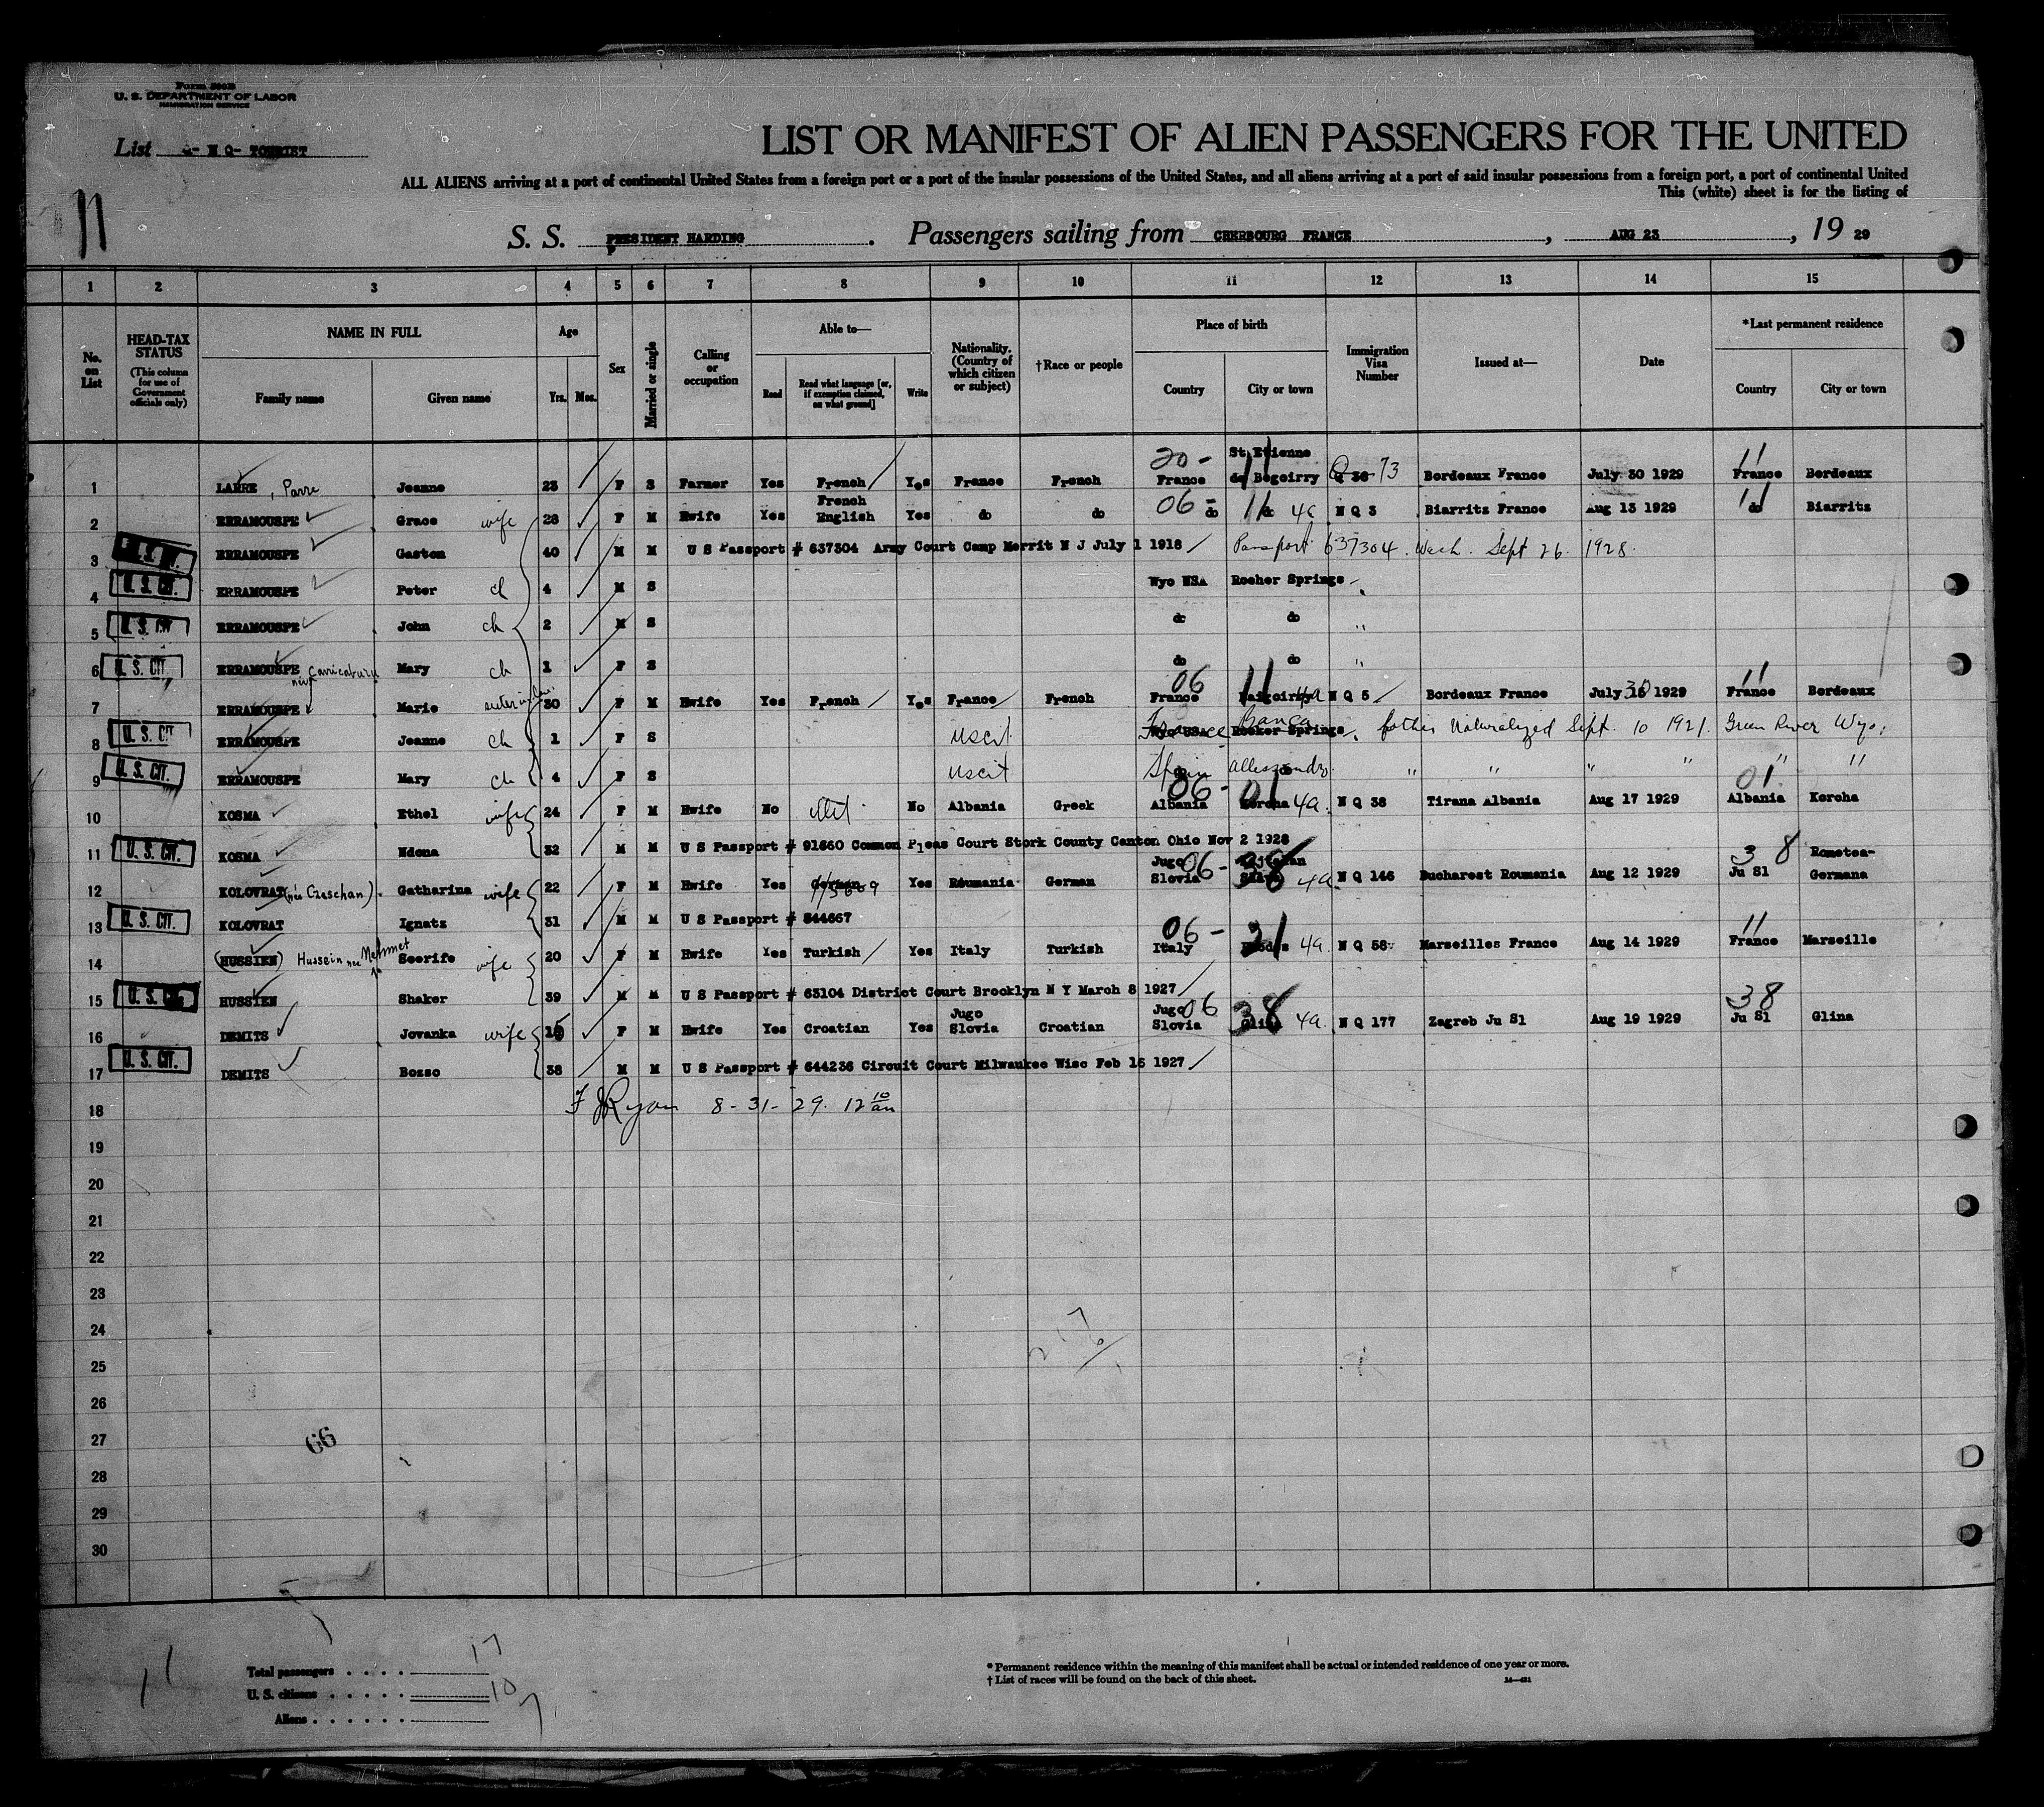 Form 500B
U. S. DEPARTMENT OF LABOR
IMMIGRATION SERVICE
List Q- N Q- TOURIST
11
LIST OR MANIFEST OF ALIEN PASSENGERS FOR THE UNITED
ALL ALIENS arriving at a port of continental United States from a foreign port or a port of the insular possessions of the United States, and all aliens arriving at a port of said insular possessions from a foreign port, a port of continental United
This (white) sheet is for the listing of
S. S. PRESIDENT HARDING . Passengers sailing from CHERBOURG FRANCE , AUG 23 , 19 29
1 2 3 4 5 6 7 8 9 10 11 12 13 14 15
No. on List
HEAD-TAX STATUS (This column for use of Government officials only)
NAME IN FULL
Family name
Given name
Age
Yrs. Mos.
Sex
Married or single
Calling or occupation
Able to—
Read
Read what language [or, if exemption claimed, on what ground]
Write
Nationality. (Country of which citizen or subject)
†Race or people
Place of birth
Country
City or town
Immigration Visa Number
Issued at—
Date
*Last permanent residence
Country
City or town
1 LARRE , Parre Jeanne 23 F S Farmer Yes French Yes France French 20- France 11 St Etienne de Begoirry Q 36 73 Bordeaux France July 30 1929 11 France Bordeaux
2 ERRAMOUSPE Grace wife 28 F M Hwife Yes French English Yes do do 06- do 11 do 4a N Q 3 Biarritz France Aug 13 1929 11 do Biarritz
3 U. S. CIT. ERRAMOUSPE Gaston 40 M M U S Passport # 637304 Army Court Camp Merrit N J July 1 1918 Passport 637304. Wash. Sept 26. 1928.
4 U. S. CIT. ERRAMOUSPE Peter ch 4 M S Wyo USA Rocher Springs
5 U. S. CIT. ERRAMOUSPE John ch 2 M S do do "
6 U. S. CIT. ERRAMOUSPE Mary ch 1 F S do do "
7 ERRAMOUSPE née Carricaburu Marie sister in law 30 F M Hwife Yes French Yes France French 06 France 11 4a N Q 5 Bordeaux France July 16 30 1929 11 France Bordeaux
8 U. S. CIT. ERRAMOUSPE Jeanne ch 1 F S US cit Wyo USA France Rocker Springs Banca father Naturalized Sept. 10 1921. Green River Wyo.
9 U. S. CIT. ERRAMOUSPE Mary ch 4 F S US cit Spain " " " " "
10 KOSMA Ethel wife 24 F M Hwife No No Albania Greek 06- Albania 01 Korcha 4a. N Q 38 Tirana Albania Aug 17 1929 01 Albania Korcha
11 U. S. CIT. KOSMA Ndona 32 M M U S Passport # 91660 Common Pleas Court Stork County Canton Ohio Nov 2 1928
12 KOLOVRAT (née Czaschan) Catharina wife 22 F M Hwife Yes German Yes Roumania German Jugo Slovia 06- 38 4a. N Q 146 Bucharest Roumania Aug 12 1929 38 Ju Sl Rometea- Germana
13 U. S. CIT. KOLOVRAT Ignatz 31 M M U S Passport # 544667
14 (HUSSIEN) Hussein née Mehmet Seerife wife 20 F M Hwife Yes Turkish Yes Italy Turkish 06- Italy 21 Rhodes 4a. N Q 58 Marseilles France Aug 14 1929 11 France Marseille
15 U. S. CIT. HUSSIEN Shaker 39 M M U S Passport # 63104 District Court Brooklyn N Y March 8 1927
16 DEMITS Jovanka wife 15 F M Hwife Yes Croatian Yes Jugo Slovia Croatian Jugo Slovia 06 38 Glina 4a. N Q 177 Zagreb Ju Sl Aug 19 1929 38 Ju Sl Glina
17 U. S. CIT. DEMITS Bozso 38 M M U S Passport # 644236 Circuit Court Milwaukee Wisc Feb 15 1927
18 F J Ryan 8-31-29. 12 10 am
19
20
21
22
23
24
25
26
27 66
28
29
30
11
Total passengers . . . . 17
U. S. citizens . . . . . 10
Aliens . . . . . . 7
* Permanent residence within the meaning of this manifest shall be actual or intended residence of one year or more.
† List of races will be found on the back of this sheet.
14—431